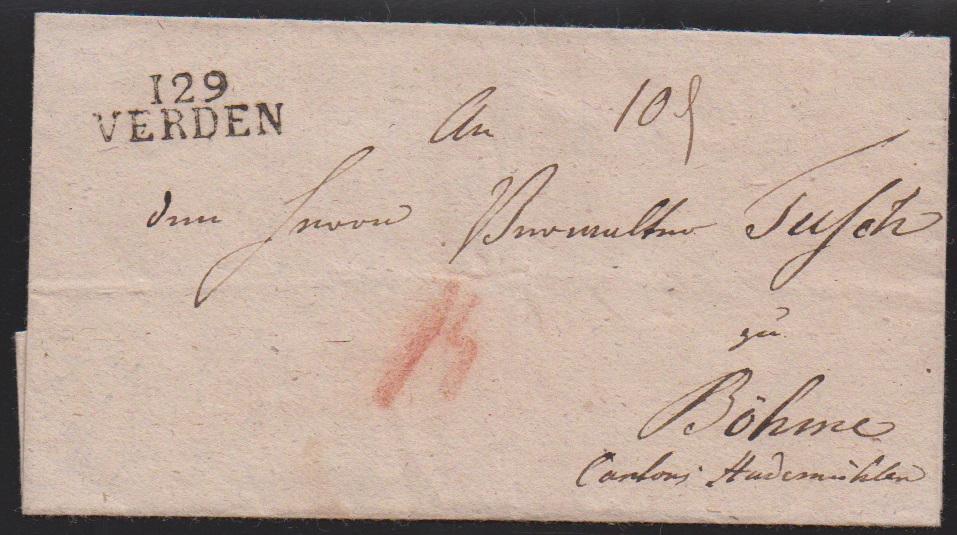 129
VERDEN
An
dem Herrn Verwalter Tusch
zu
Böhme
Cantons Hudemühlen